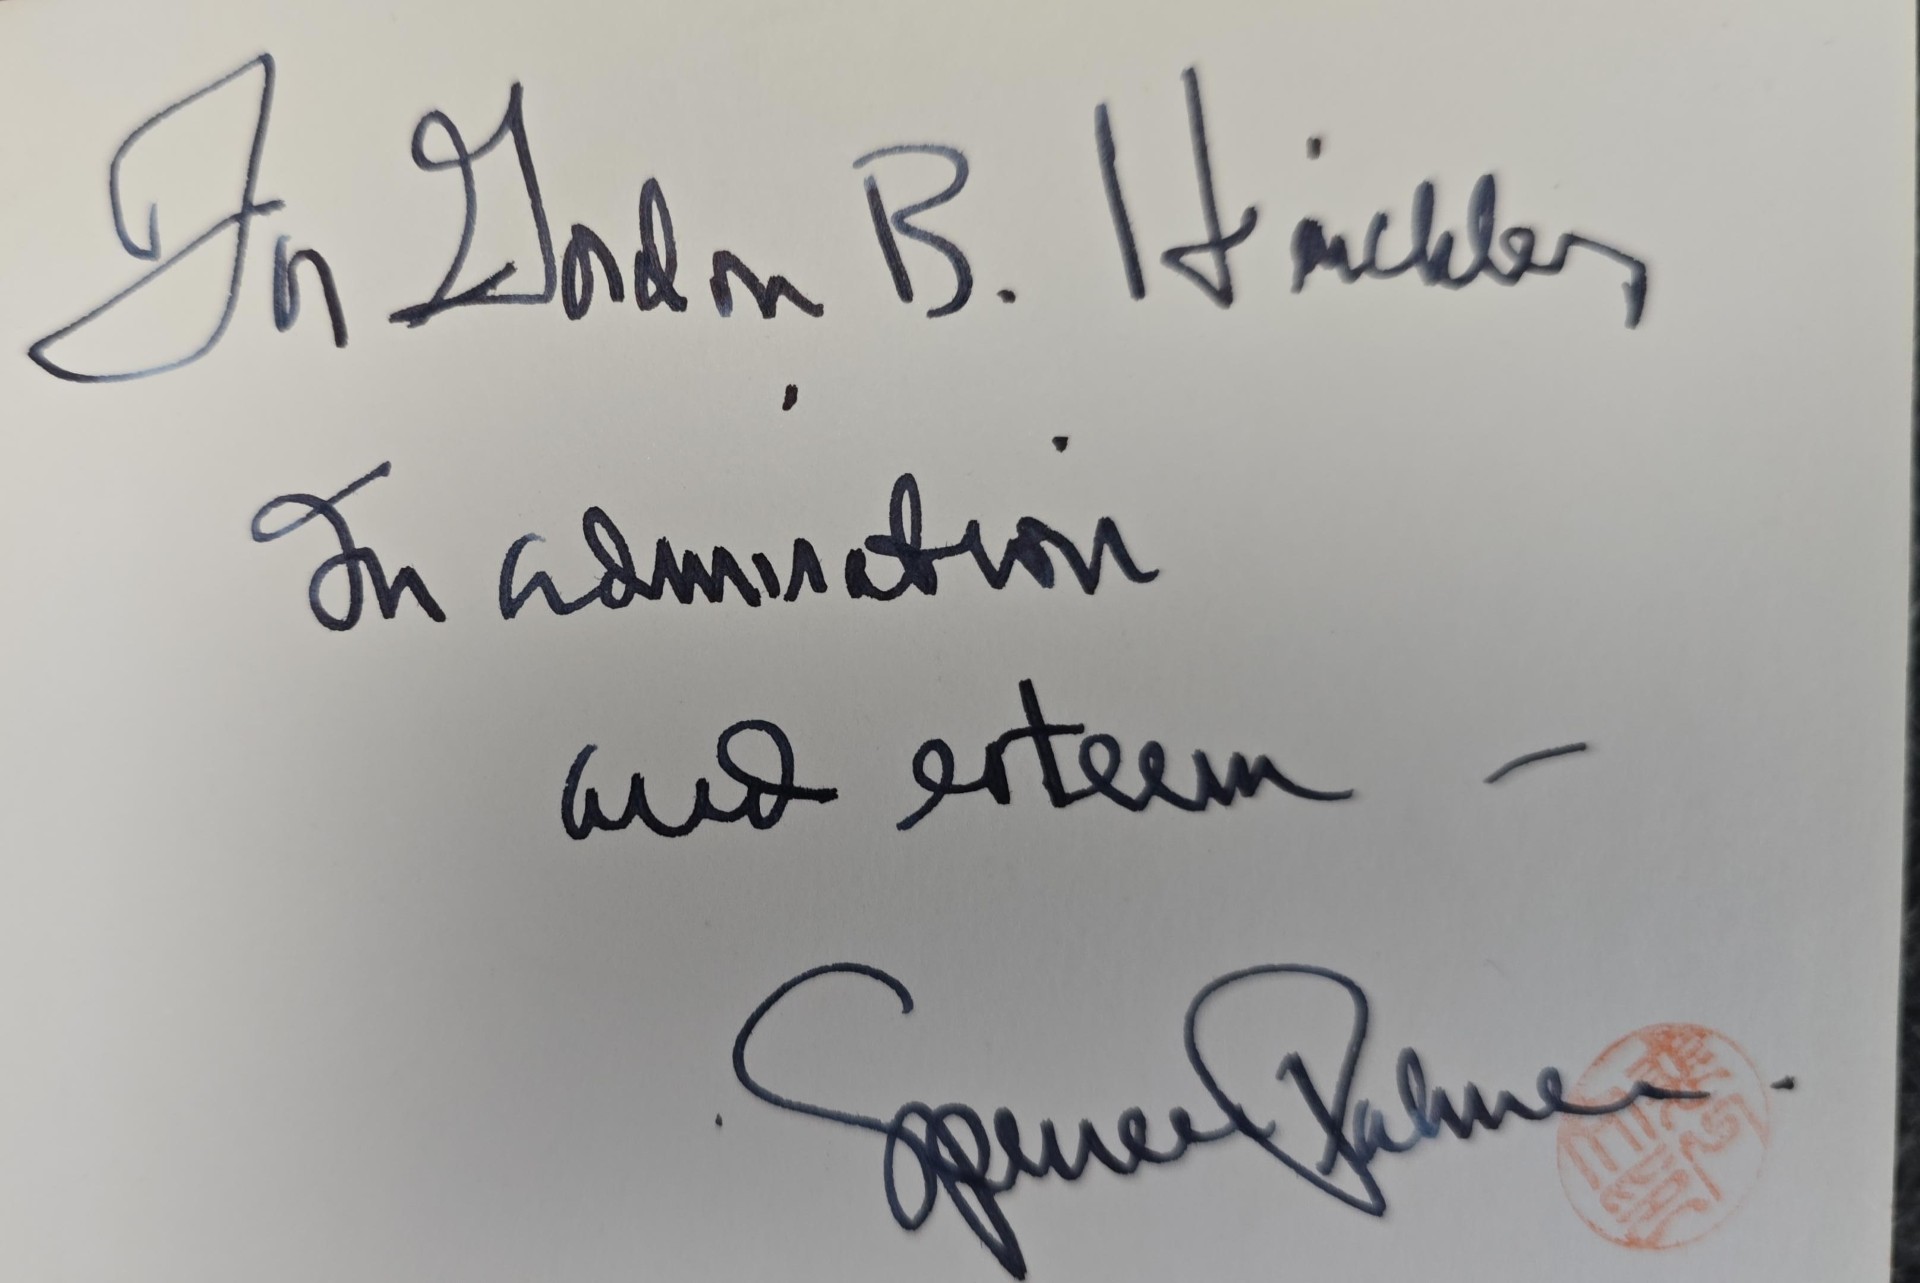 For Gordon B. Hinckley
In admiration
and esteem –
Spencer Palmer